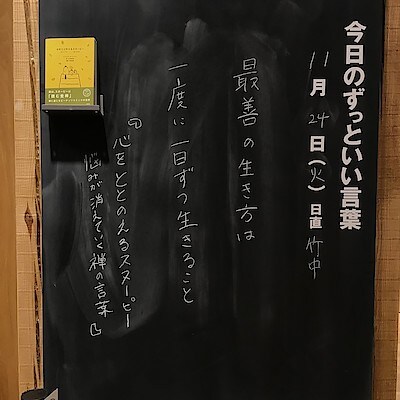 今日のずっといい言葉
11月24日(火)日直 竹中
最善の生き方は
一度に一日ずつ生きること
『心をととのえるスヌーピー
悩みが消えていく禅の言葉』